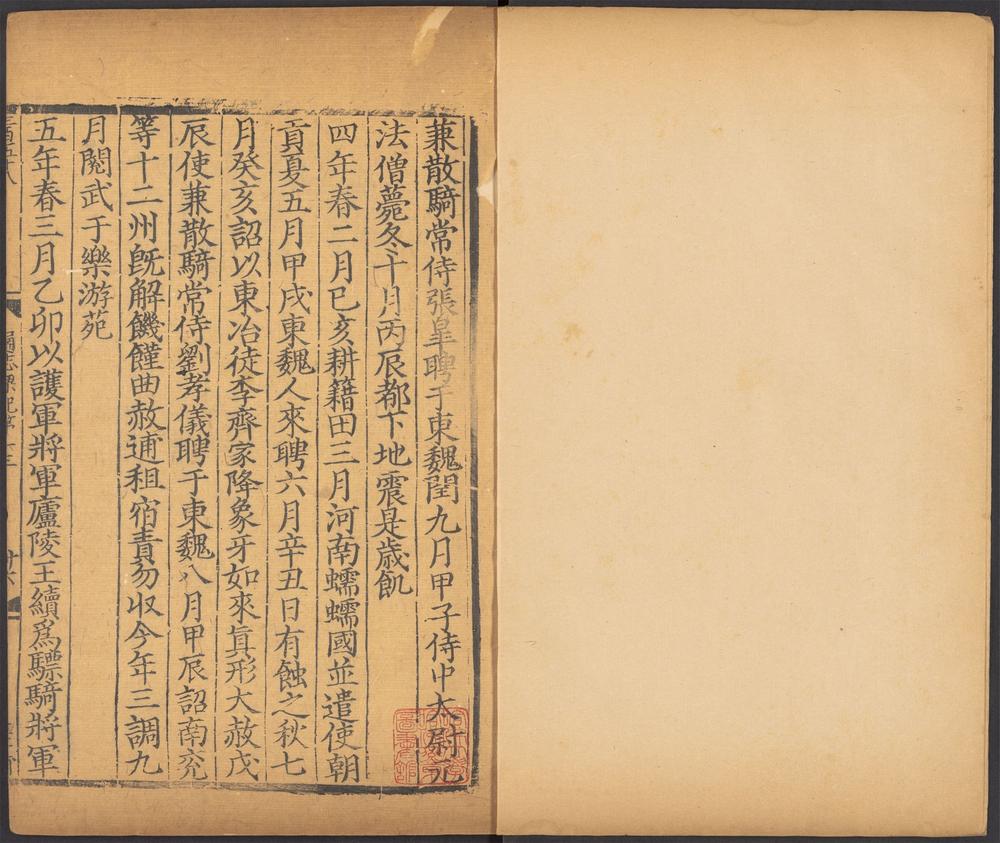 兼散騎常侍張皐聘于東魏閏九月甲子侍中太尉元
法僧薨冬十月丙辰都下地震是歳飢
四年春二月己亥耕籍田三月河南蠕蠕國並遣使朝
貢夏五月甲戌東魏人來聘六月辛丑日有蝕之秋七
月癸亥詔以東冶徒李齊家降象牙如來真形大赦戊
辰使兼散騎常侍劉孝儀聘于東魏八月甲辰詔南兖
等十二州既解饑饉曲赦逋租宿責勿收今年三調九
月閱武于樂游苑
五年春三月乙卯以護軍將軍廬陵王續爲驃騎將軍